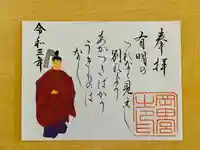 奉拝
有明の
つれなく見えし
別れより
あかつきばかり
うきものは
なし
令和三年